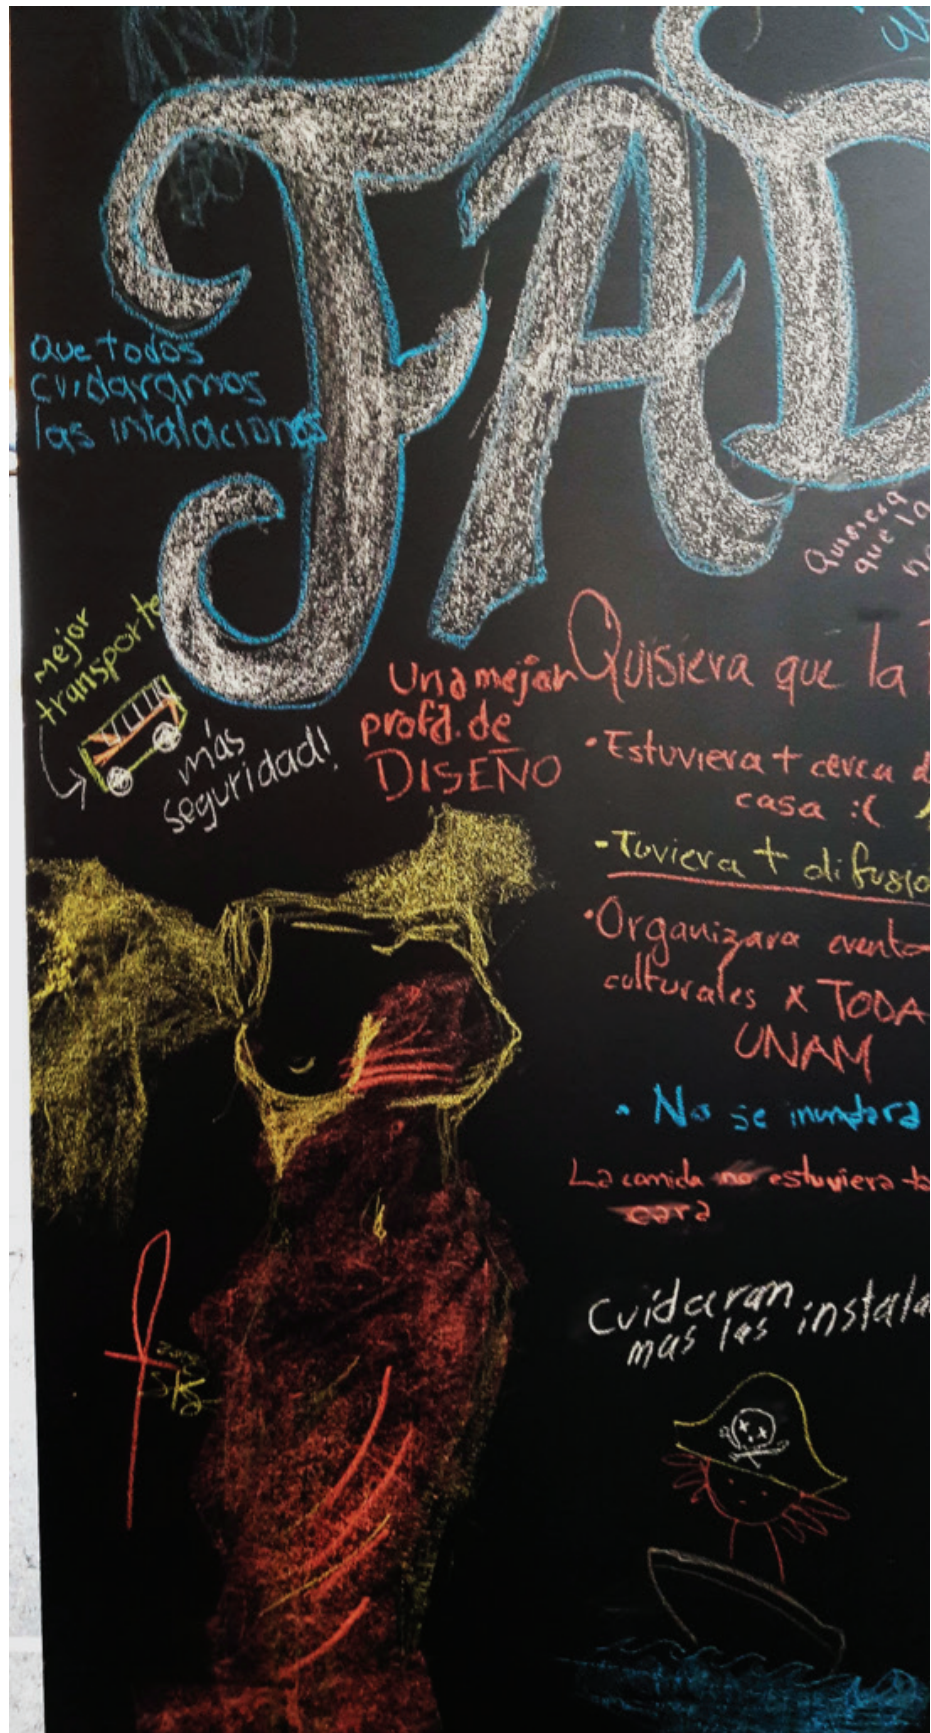 FAD
Que todos
cuidaramos
las intalaciones
Quisiera
que la
Mejor
transporte
más
seguridad!
Una mejor
profa. de
DISEÑO
Quisiera que la
• Estuviera + cerca d
casa :(
- Tuviera + difusió
• Organizara evento
culturales x TODA
UNAM
• No se inundara
La comida no estuviera ta
cara
Cuidaran
mas las instala